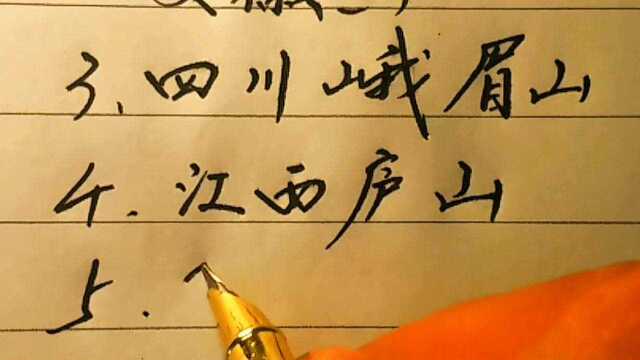 3、四川峨眉山
4.江西庐山
5.